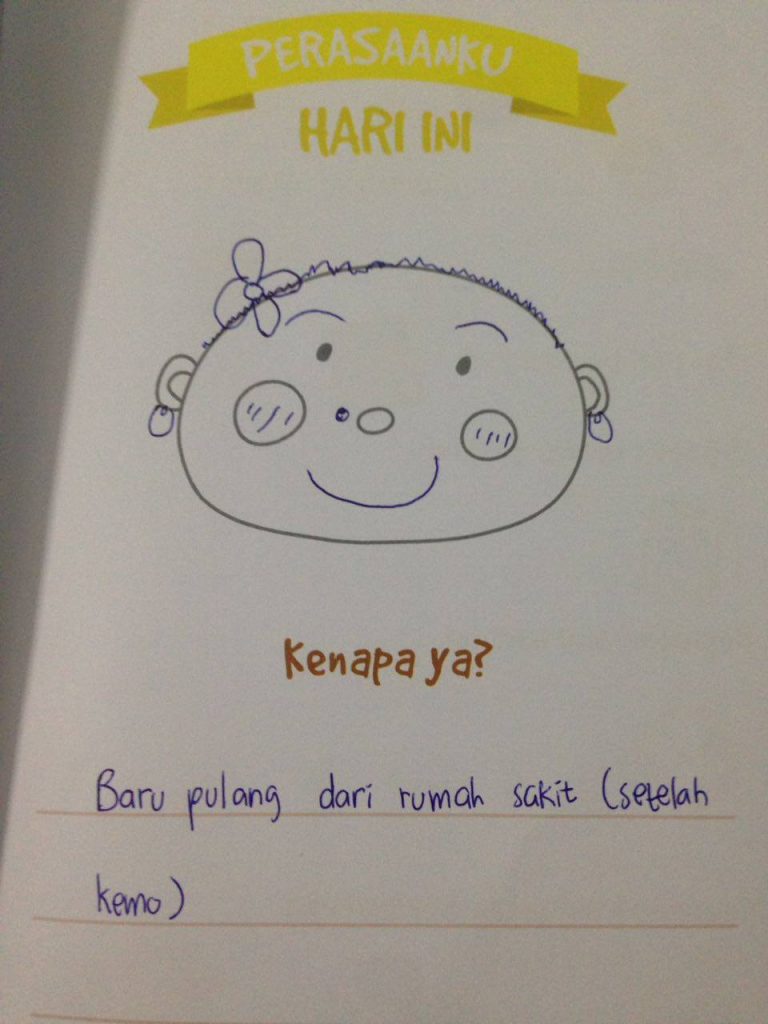 PERASAANKU
HARI INI
Kenapa ya?
Baru pulang dari rumah sakit (setelah
kemo)